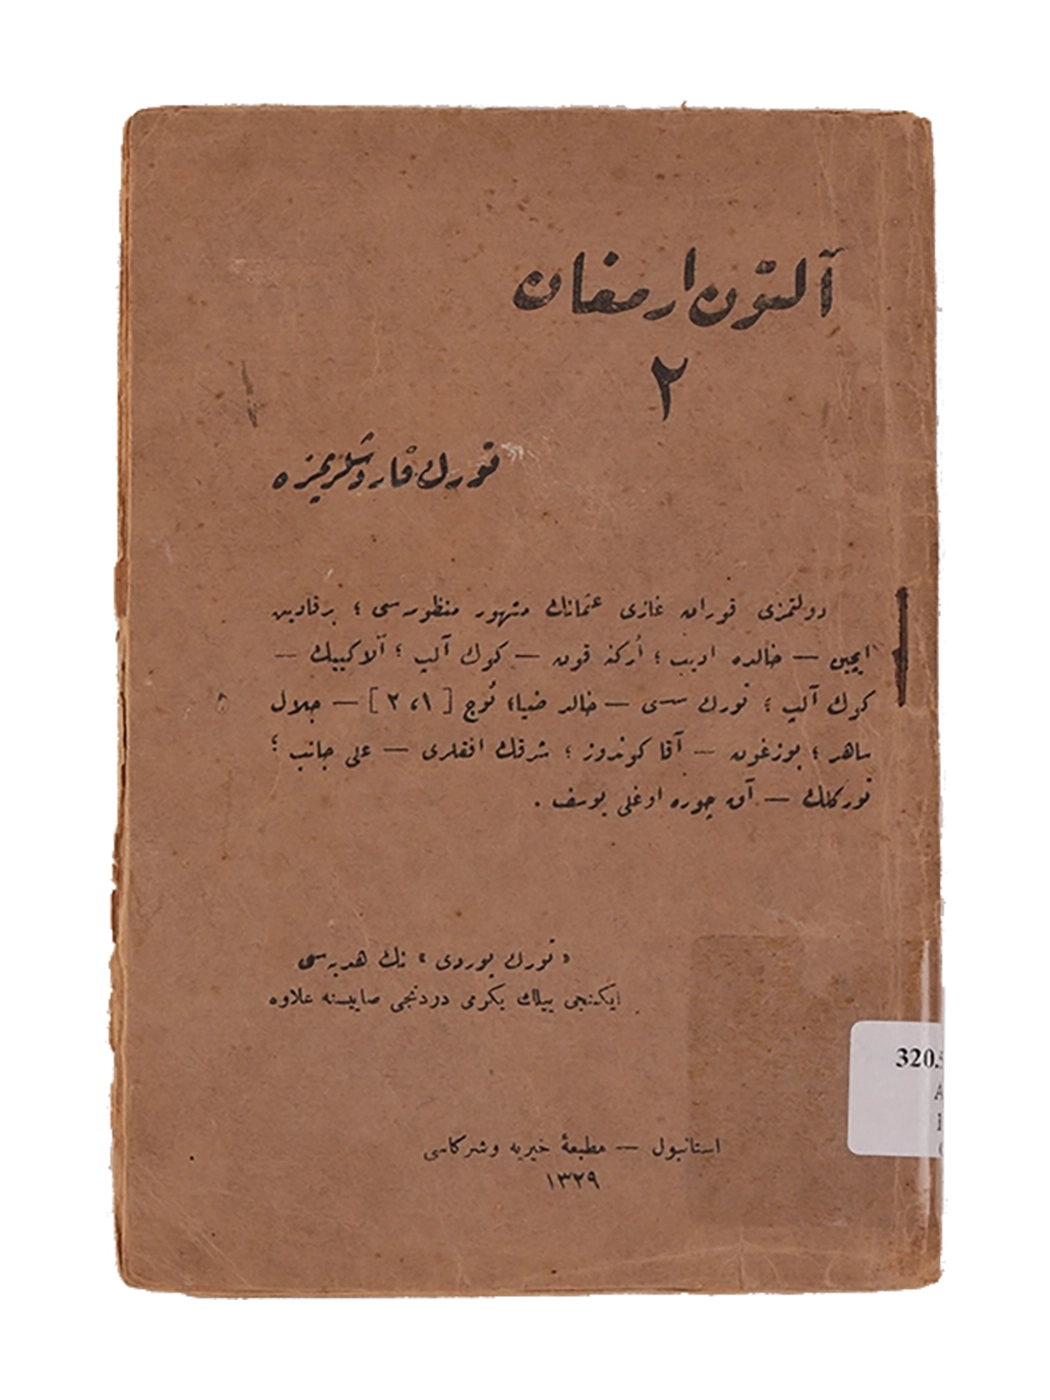 آلتون ارمغان
٢
تورك قارداشلريمزه
دولتمزى قوران غازى عثمانك مشهور منظومه سى ؛ بر قادين
ايچين — خالده اديب ؛ أركنه قون — كوك آلپ ؛ آلا كييك —
كوك آلپ ؛ تورك سسى — خالد ضيا ؛ ئوج [ ١ ، ٢ ] — جلال
ساهر ؛ بوزغون — آقا كوندوز ؛ شرقك افقلرى — على جانب ؛
توركلك — آق چوره اوغلى يوسف .
« تورك يوردى » نك هديه سى
ايكنجى ييلك يكرمى دردنجى صاييسنه علاوه
استانبول — مطبعهٔ خيريه وشركاسى
١٣٢٩
320.5